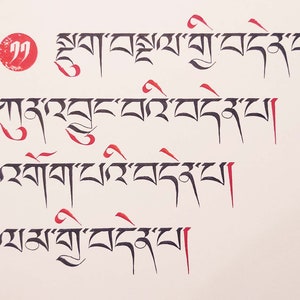 སྡུག་བསྔལ་གྱི་བདེན་
ཀུན་འབྱུང་བའི་བདེན་པ།
འགོག་པའི་བདེན་པ།
ལམ་གྱི་བདེན་པ།